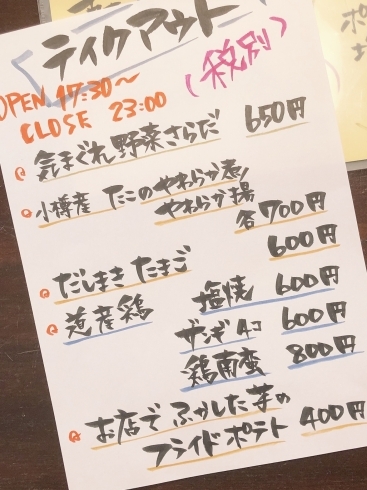 ティクアウト
(税別)
OPEN 17:30〜
CLOSE 23:00
気まぐれ野菜さらだ 650円
小樽産 たこのやわらか煮/
やわらか揚
各700円
600円
だしまきたまご
道産鶏 塩焼 600円
ザンギ4コ 600円
鶏南蛮 800円
お店でふかした芋の
フライドポテト 400円